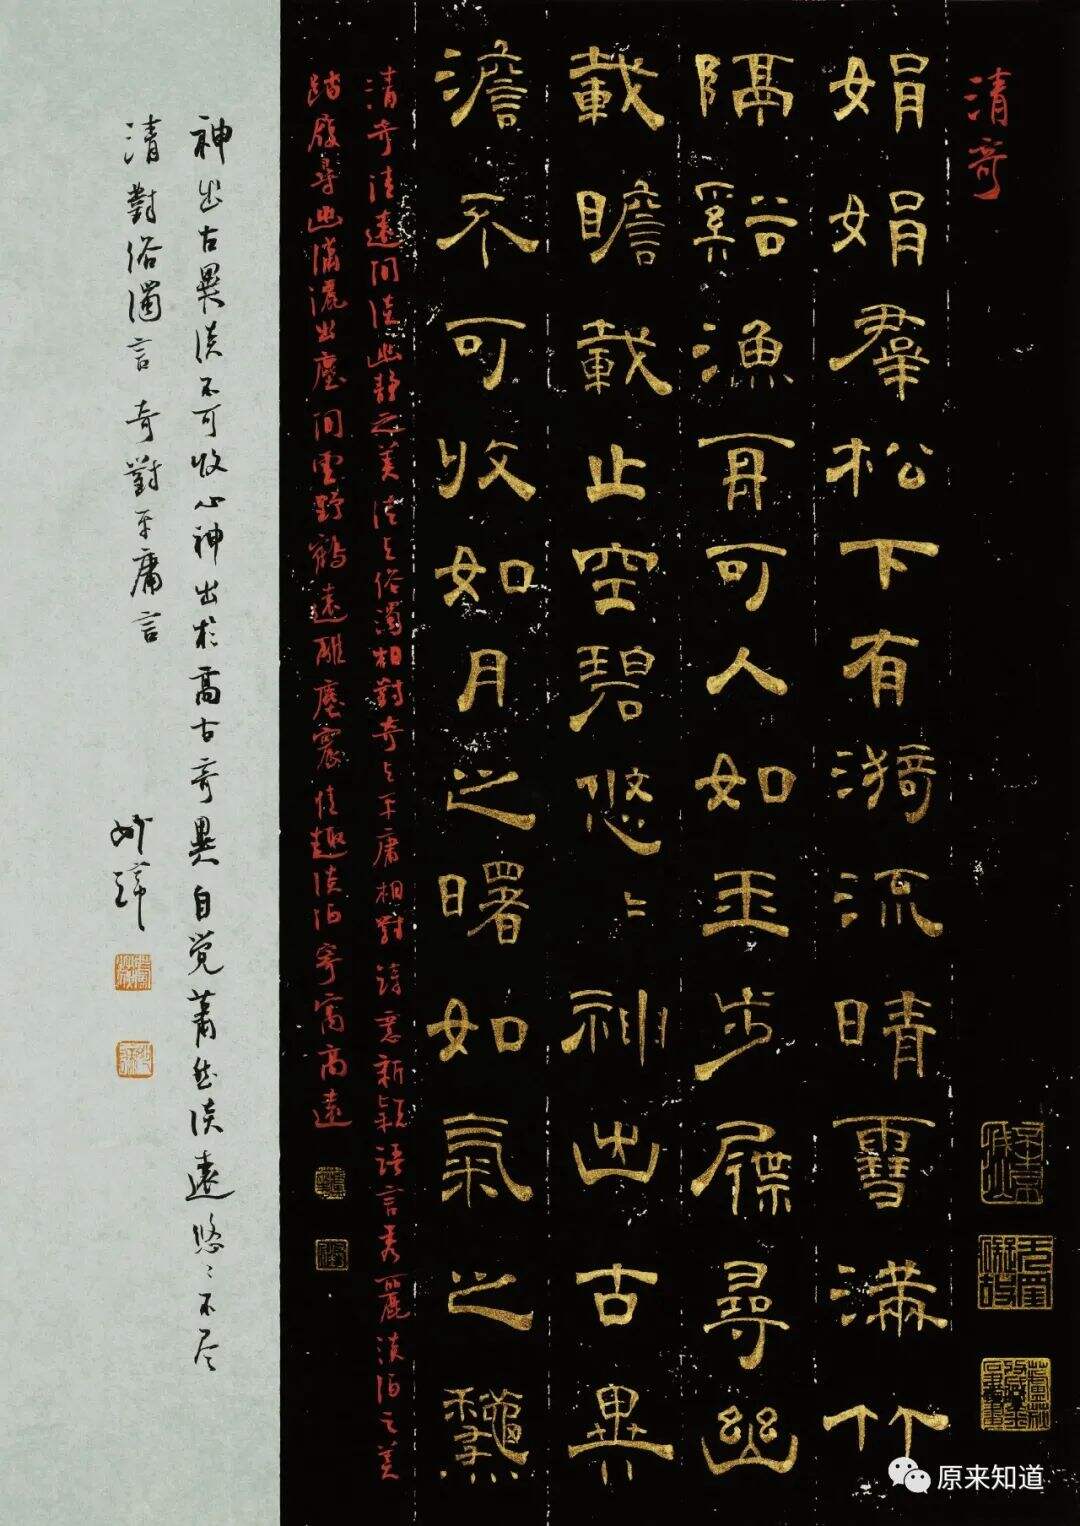 清奇
娟娟羣松下有漪流晴雪满竹
隔谿漁舟可人如玉步屧尋幽
載瞻載止空碧悠悠神出古異
澹不可收如月之曙如氣之秋
清奇清遠闲淡幽静之美清与俗濁相對奇与平庸相對詩意新颖语言秀麗淡泊之美
踏屐尋幽瀟灑出塵闲雲野鶴遠離塵寰情趣淡泊寄寓高遠
神出古異淡不可收心神出於高古奇異自觉蕭然淡遠悠悠不尽
清對俗濁言奇對平庸言
原来知道